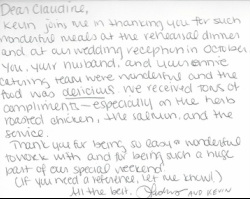 Dear Claudine,
Kevin joins me in thanking you for such
wonderful meals at the rehearsal dinner
and at our wedding reception in October.
You, your husband, and your
catering team were wonderful and the
food was delicious. We received tons of
compliments - especially on the herb
roasted chicken, the salmon, and the
service.
Thank you for being so easy & wonderful
to work with and for being such a huge
part of our special weekend!
(If you need a reference, let me know!)
All the best, AND KEVIN